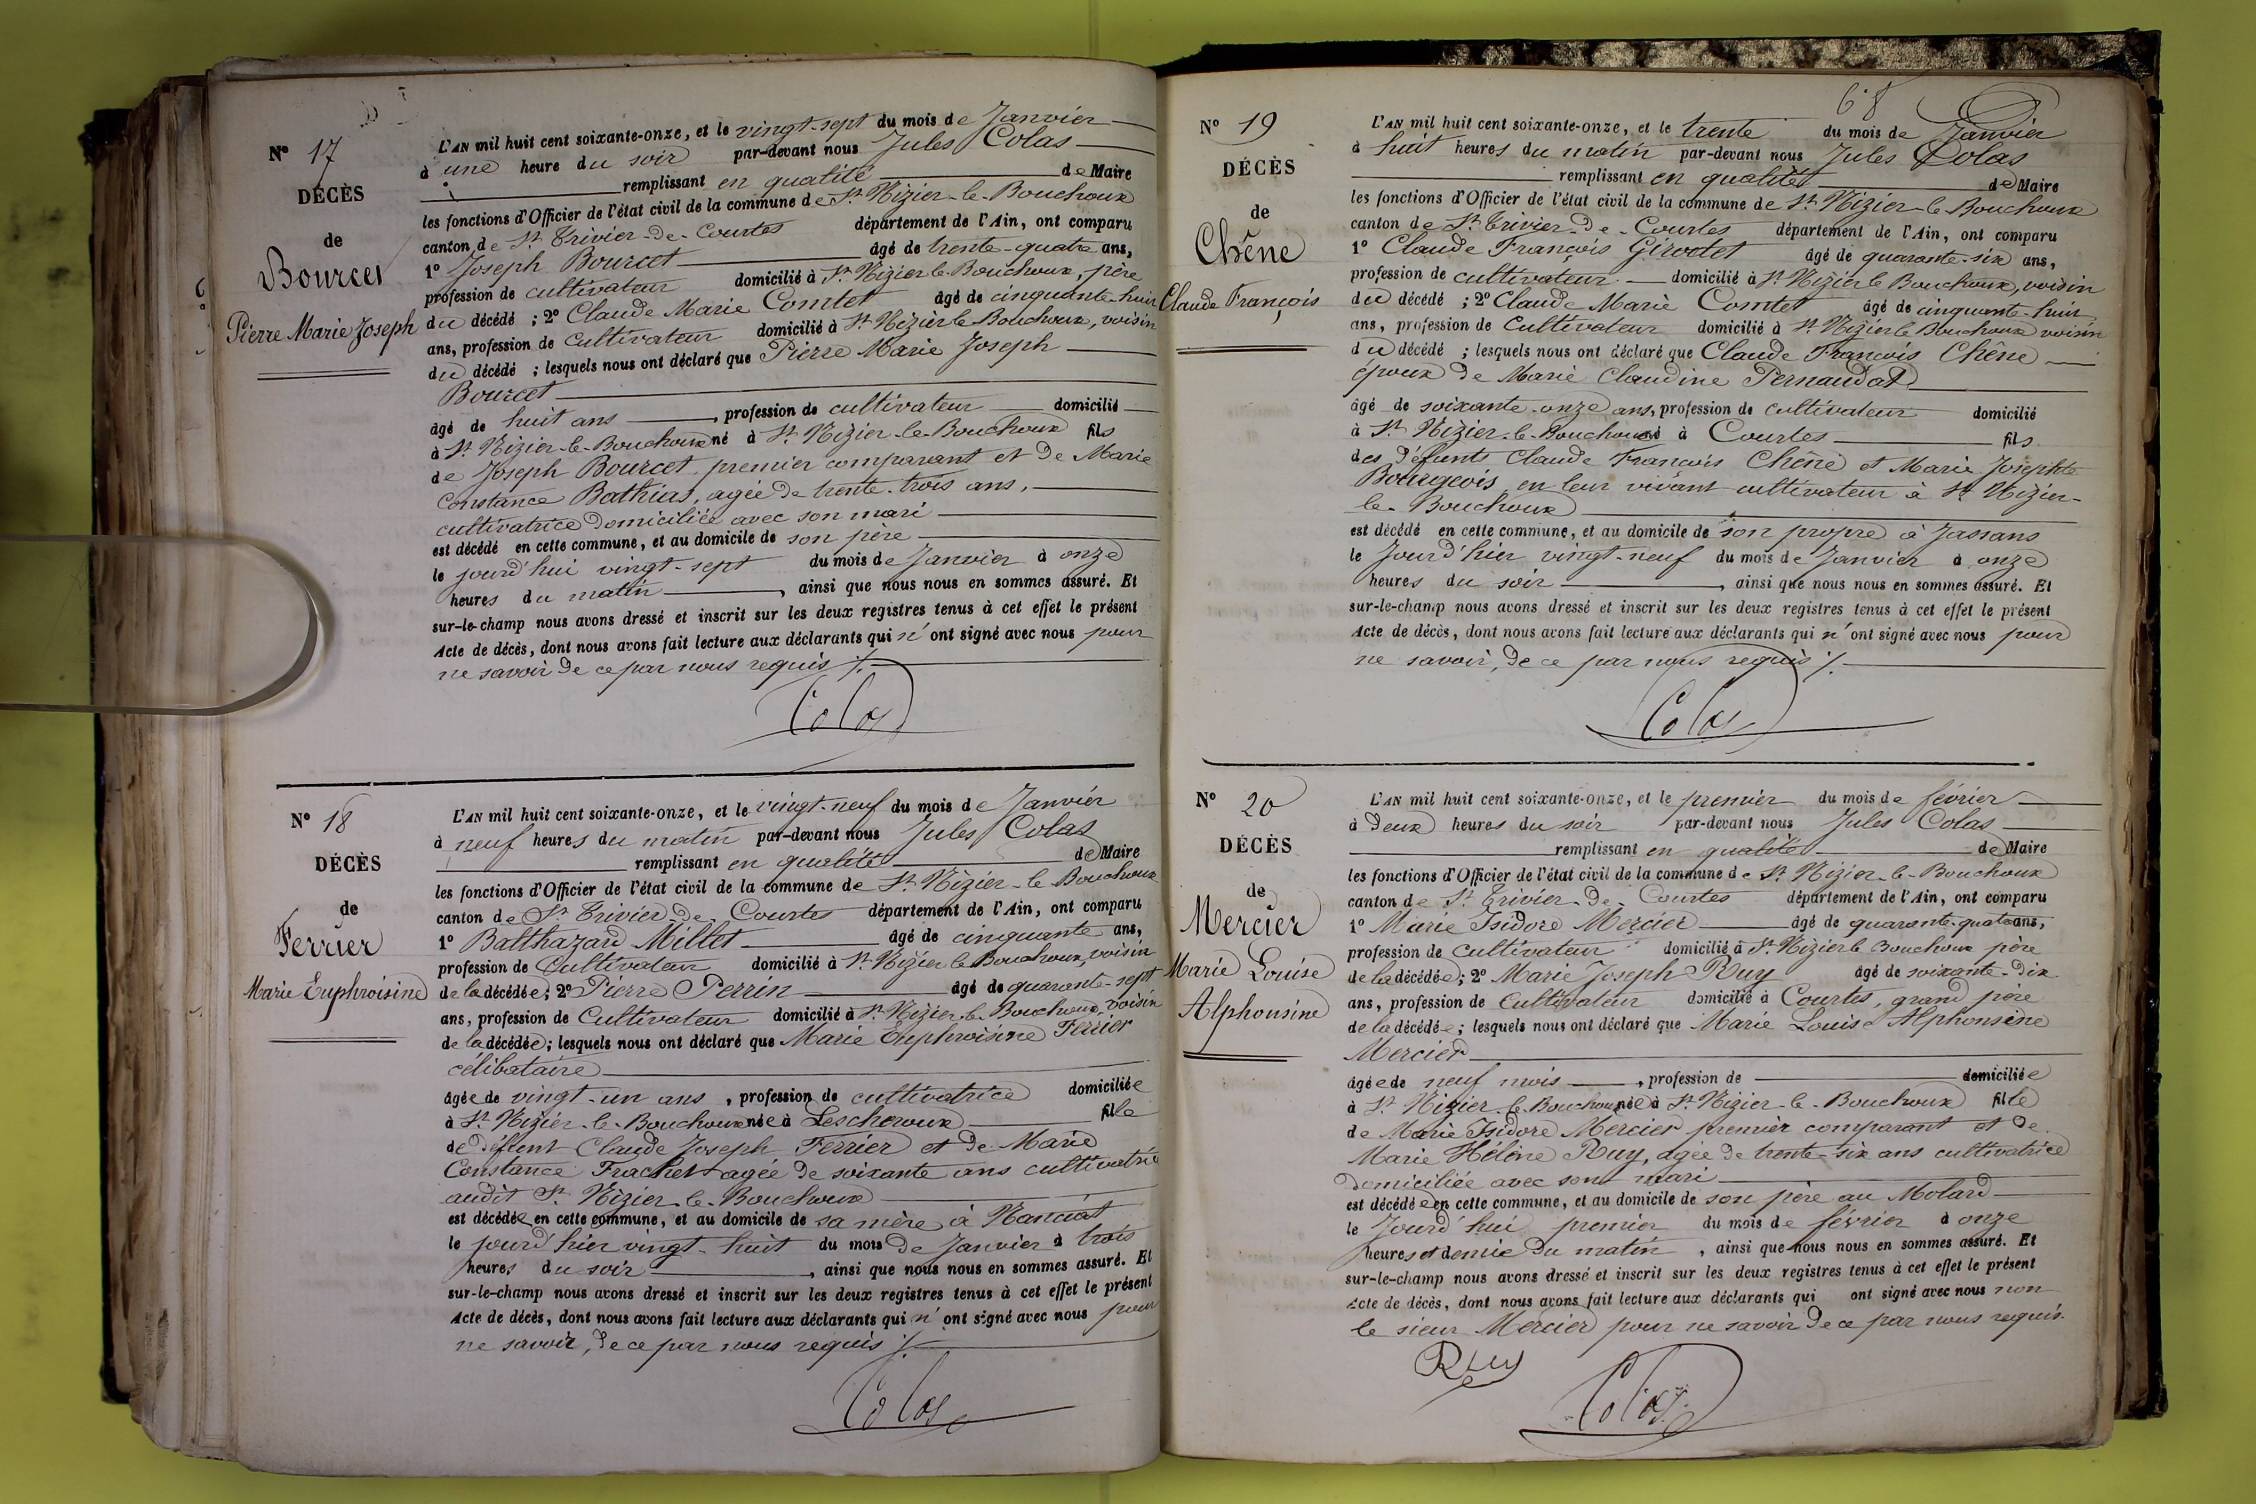 N° 17
DÉCÈS
de
Bourcet
Pierre Marie Joseph
L'AN mil huit cent soixante-onze, et le vingt-sept du mois de Janvier
à une heure du soir par-devant nous Jules Colas
remplissant en qualité de Maire
les fonctions d'Officier de l'état civil de la commune de St Nizier-le-Bouchoux
canton de St Trivier-de-Courtes département de l'Ain, ont comparu
1° Joseph Bourcet âgé de trente-quatre ans,
profession de cultivateur domicilié à St Nizier le Bouchoux, père
du décédé ; 2° Claude Marie Comtet âgé de cinquante-huit
ans, profession de cultivateur domicilié à St Nizier le Bouchoux, voisin
du décédé ; lesquels nous ont déclaré que Pierre Marie Joseph
Bourcet
âgé de huit ans, profession de cultivateur domicilié
à St Nizier-le-Bouchoux né à St Nizier-le-Bouchoux fils
de Joseph Bourcet premier comparant et de Marie
Constance Bathias, agée de trente-trois ans,
cultivatrice domiciliée avec son mari
est décédé en cette commune, et au domicile de son père
le jourd'hui vingt-sept du mois de Janvier à onze
heures du matin, ainsi que nous nous en sommes assuré. Et
sur-le-champ nous avons dressé et inscrit sur les deux registres tenus à cet effet le présent
Acte de décès, dont nous avons fait lecture aux déclarants qui n'ont signé avec nous pour
ne savoir de ce par nous requis /.
Colas
N° 18
DÉCÈS
de
Ferrier
Marie Euphroisine
L'AN mil huit cent soixante-onze, et le vingt-neuf du mois de Janvier
à neuf heures du matin par-devant nous Jules Colas
remplissant en qualité de Maire
les fonctions d'Officier de l'état civil de la commune de St Nizier-le-Bouchoux
canton de St Trivier-de-Courtes département de l'Ain, ont comparu
1° Balthazard Millet âgé de cinquante ans,
profession de Cultivateur domicilié à St Nizier le Bouchoux, voisin
de la décédée; 2° Pierre Perrin âgé de quarante-sept
ans, profession de Cultivateur domicilié à St Nizier-le-Bouchoux, voisin
de la décédée; lesquels nous ont déclaré que Marie Euphroisine Ferrier
célibataire
âgée de vingt-un ans, profession de cultivatrice domiciliée
à St Nizier-le-Bouchoux née à Lescheroux fille
de défunt Claude Joseph Ferrier et de Marie
Constance Frachet agée de soixante ans cultivatrice
audit St Nizier-le-Bouchoux
est décédée en cette commune, et au domicile de sa mère à Nanciat
le jourd'hier vingt-huit du mois de Janvier à trois
heures du soir, ainsi que nous nous en sommes assuré. Et
sur-le-champ nous avons dressé et inscrit sur les deux registres tenus à cet effet le présent
Acte de décès, dont nous avons fait lecture aux déclarants qui n'ont signé avec nous pour
ne savoir, de ce par nous requis /.
Colas
68
N° 19
DÉCÈS
de
Chêne
Claude François
L'AN mil huit cent soixante-onze, et le trente du mois de Janvier
à huit heures du matin par-devant nous Jules Colas
remplissant en qualité de Maire
les fonctions d'Officier de l'état civil de la commune de St Nizier-le-Bouchoux
canton de St Trivier-de-Courtes département de l'Ain, ont comparu
1° Claude François Girodet âgé de quarante-six ans,
profession de cultivateur domicilié à St Nizier le Bouchoux, voisin
du décédé ; 2° Claude Marie Comtet âgé de cinquante-huit
ans, profession de Cultivateur domicilié à St Nizier le Bouchoux voisin
du décédé ; lesquels nous ont déclaré que Claude François Chêne
époux de Marie Claudine Pernaudat
âgé de soixante-onze ans, profession de cultivateur domicilié
à St Nizier-le-Bouchoux né à Courtes fils
des défunts Claude François Chêne et Marie Josephte
Bourgeois en leur vivant cultivateur à St Nizier-
le-Bouchoux
est décédé en cette commune, et au domicile de son propre à Jassans
le Jourd'hier vingt-neuf du mois de Janvier à onze
heures du soir, ainsi que nous nous en sommes assuré. Et
sur-le-champ nous avons dressé et inscrit sur les deux registres tenus à cet effet le présent
Acte de décès, dont nous avons fait lecture aux déclarants qui n'ont signé avec nous pour
ne savoir, de ce par nous requis /.
Colas
N° 20
DÉCÈS
de
Mercier
Marie Louise
Alphonsine
L'AN mil huit cent soixante-onze, et le premier du mois de février
à deux heures du soir par-devant nous Jules Colas
remplissant en qualité de Maire
les fonctions d'Officier de l'état civil de la commune de St Nizier-le-Bouchoux
canton de St Trivier-de-Courtes département de l'Ain, ont comparu
1° Marie Isidore Mercier âgé de quarante-quatre ans,
profession de Cultivateur domicilié à St Nizier le Bouchoux père
de la décédée; 2° Marie Joseph Ruy âgé de soixante-dix
ans, profession de Cultivateur domicilié à Courtes, grand père
de la décédée; lesquels nous ont déclaré que Marie Louise Alphonsine
Mercier
âgée de neuf mois, profession de domiciliée
à St Nizier-le-Bouchoux née à St Nizier-le-Bouchoux fille
de Marie Isidore Mercier premier comparant et de
Marie Hélène Ruy, agée de trente-six ans cultivatrice
domiciliée avec son mari
est décédée en cette commune, et au domicile de son père au Molard
le Jourd'hui premier du mois de février à onze
heures et demie du matin, ainsi que nous nous en sommes assuré. Et
sur-le-champ nous avons dressé et inscrit sur les deux registres tenus à cet effet le présent
Acte de décès, dont nous avons fait lecture aux déclarants qui ont signé avec nous non
le sieur Mercier pour ne savoir de ce par nous requis.
Ruy
Colas